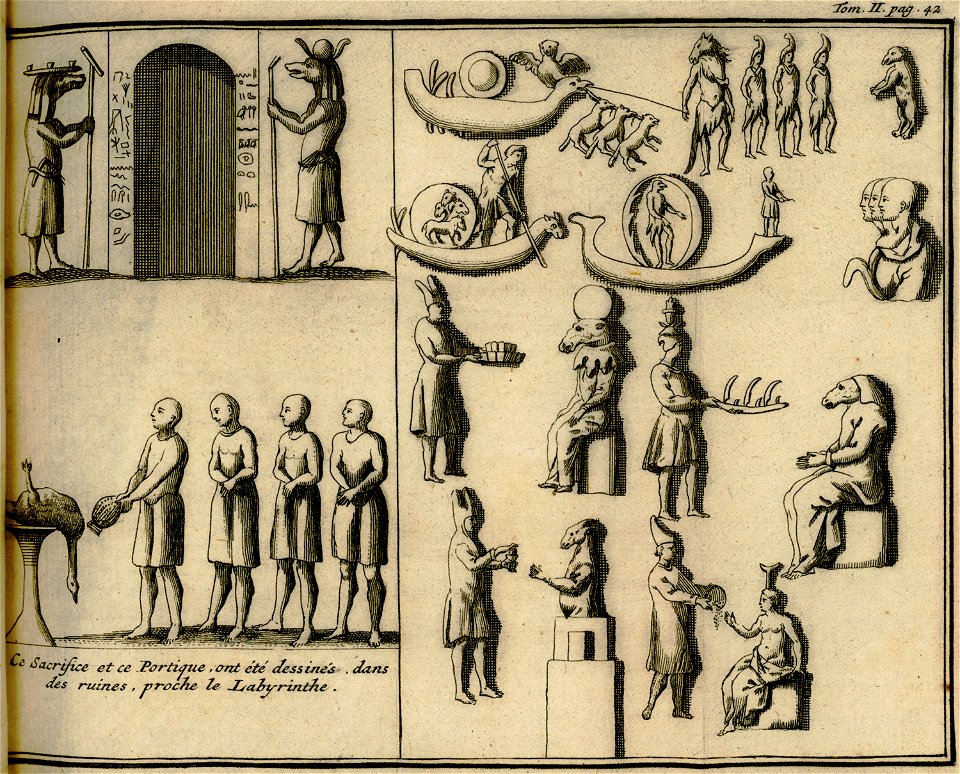 Tom. II. pag. 42
Ce Sacrifice et ce Portique, ont été dessinés, dans
des ruines, proche le Labyrinthe.